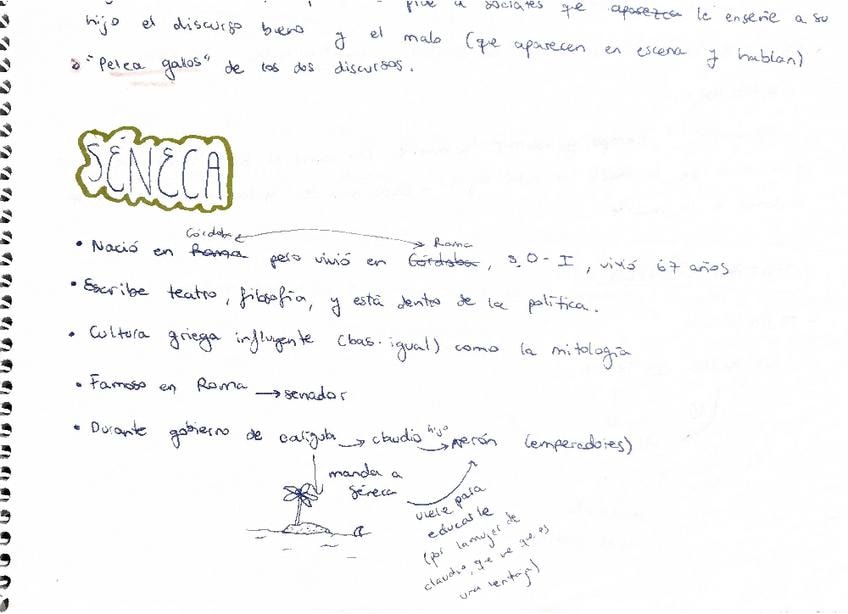 pide a sociates que aparezca le enseñe a su
hijo el discurso bueno y el malo (que aparecen en escena y hablan)
"Pelea gallos" de los dos discursos.
SÉNECA
Córdoba Roma
• Nació en Roma pero vivió en Córdoba, s. 0 - I, vivió 67 años
• Escribe teatro, filosofía, y está dentro de la política.
• Cultura griega influyente (bas. igual) como la mitología
• Famoso en Roma → senador
• Durante gobierno de calígula → claudio hijo → Nerón (emperadores)
manda a
Séneca
vuelve para
educarle
(por la mujer de
claudio, que ve que es
una ventaja)